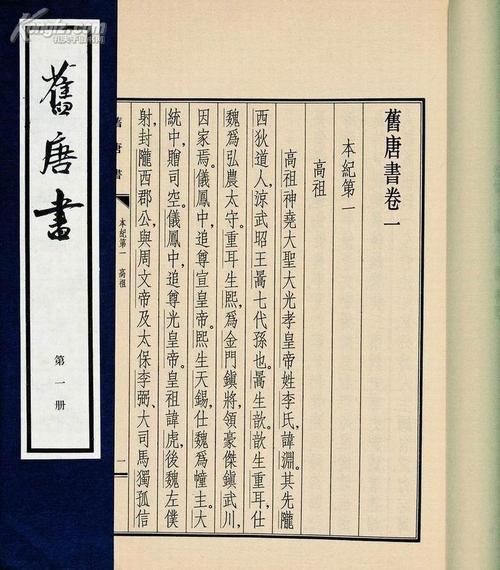 Kongfz.com
孔夫子旧书网
舊唐書
第一册
舊唐書卷一
本紀第一
高祖
高祖神堯大聖大光孝皇帝姓李氏,諱淵。其先隴
西狄道人,涼武昭王暠七代孫也。暠生歆。歆生重耳,仕
魏爲弘農太守。重耳生熙,爲金門鎮將,領豪傑鎮武川,
因家焉。儀鳳中,追尊宣皇帝。熙生天錫,仕魏爲幢主。大
統中,贈司空。儀鳳中,追尊光皇帝。皇祖諱虎,後魏左僕
射,封隴西郡公,與周文帝及太保李弼、大司馬獨孤信
舊唐書
本紀第一 高祖
一